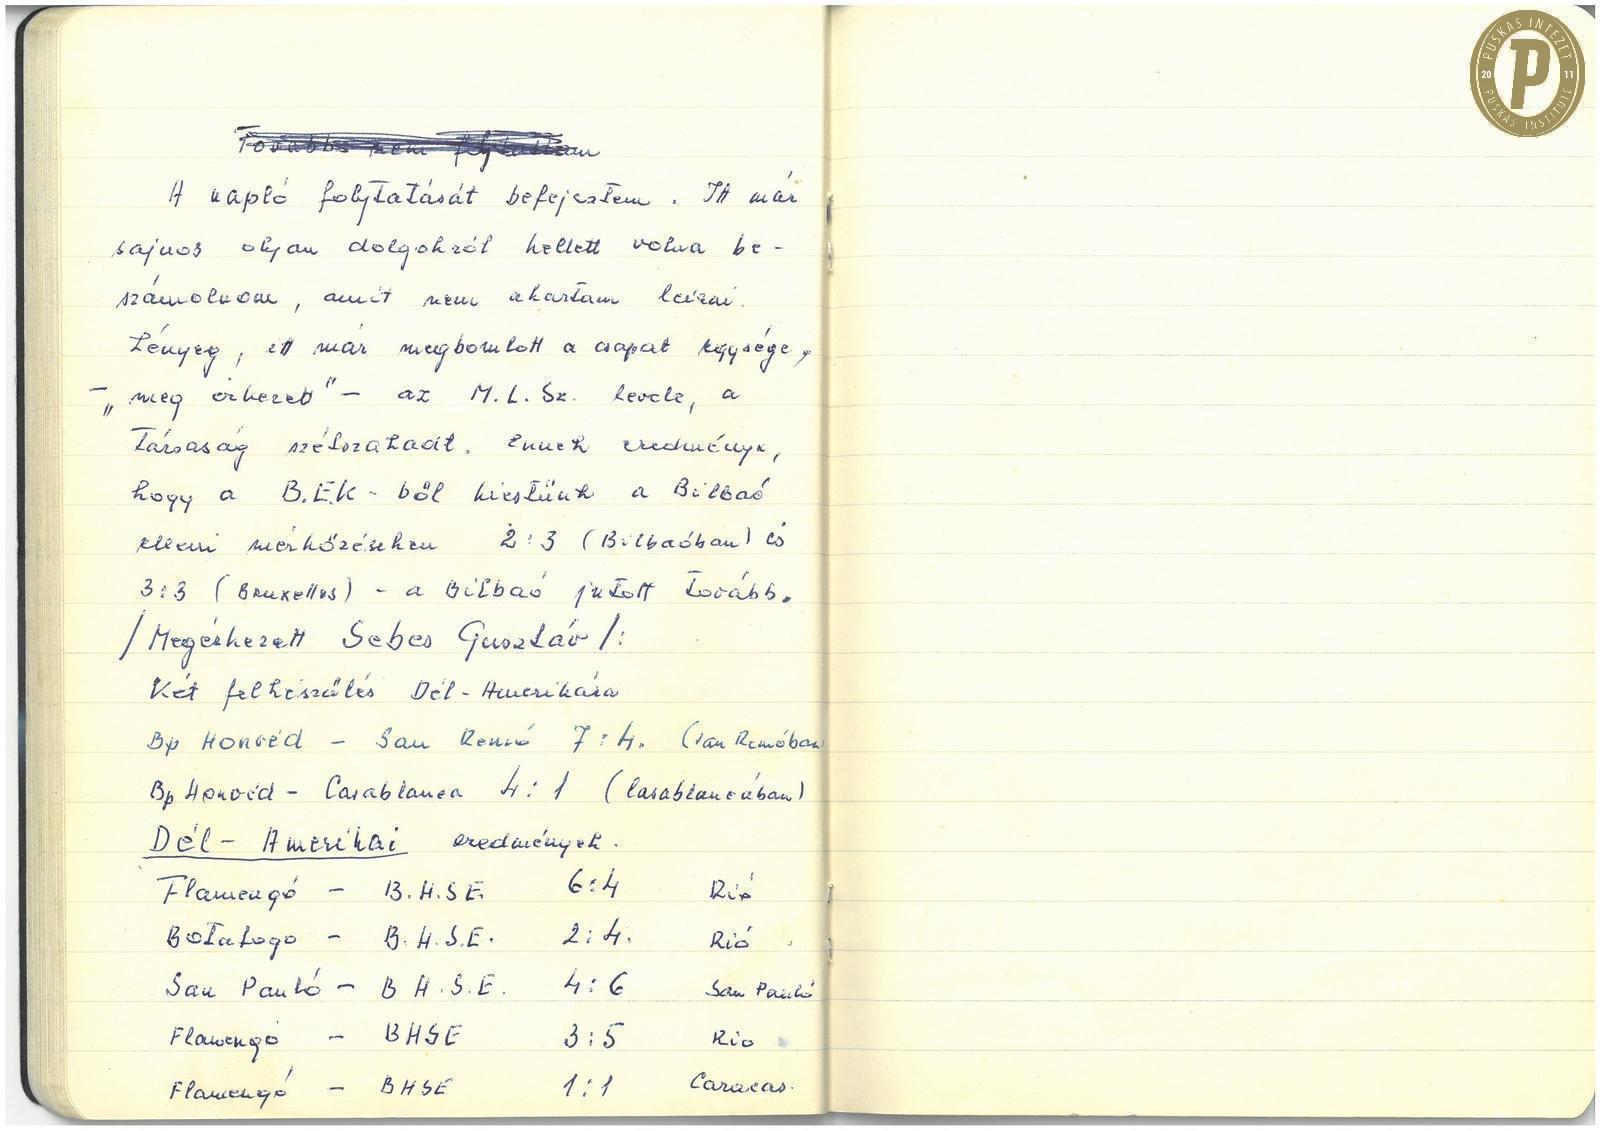 Továbbá nem folytattam
A napló folytatását befejeztem. Itt már
sajnos olyan dolgokról kellett volna be-
számolnom, amit nem akartam leírni.
Lényeg, itt már megbomlott a csapat egysége,
– „meg érkezett" – az M.L.Sz. levele, a
társaság szétszakadt. Ennek eredménye,
hogy a B.E.K-ből kiestünk a Bilbaó
elleni mérkőzéseken 2:3 (Bilbaóban) és
3:3 (Bruxelles) - a Bilbaó jutott tovább.
/Megérkezett Sebes Gusztáv/:
Két felkészülés Dél-Amerikára
Bp Honvéd – San Remó 7:4. (San Remóban
Bp Honvéd – Casablanca 4:1 (Casablancában)
Dél-Amerikai eredmények.
Flamengó – B.H.S.E. 6:4 Rió
Botafogo – B.H.S.E. 2:4. Rió
San Pauló – B H.S.E. 4:6 San Pauló
Flamengó – BHSE 3:5 Rio
Flamengó – BHSE 1:1 Caracas.
PUSKÁS INTÉZET
20 P 11
PUSKÁS INSTITUTE